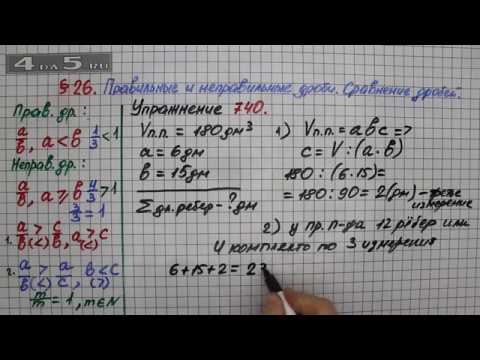 4 да 5.ru
§ 26. Правильные и неправильные дроби. Сравнение дробей.
Прав. др.:
a/b, a < b 1/3 < 1
Неправ. др.:
a/b, a ≥ b 4/3 > 1
3/3 = 1
1. a/b > c/b, a > c
(<) (<)
2. a/b > a/c b < c
(<) (>)
m/m = 1, m ∈ N
Упражнение 740.
Vп.п. = 180 дм³
a = 6 дм
b = 15 дм
Σ дл. рёбер - ? дм
1) Vп.п. = a b c =>
c = V : (a · b)
180 : (6 · 15) =
= 180 : 90 = 2 (дм) – третье
измерение
2) у пр. п-да 12 рёбер или
4 комплекта по 3 измерения
6 + 15 + 2 = 23